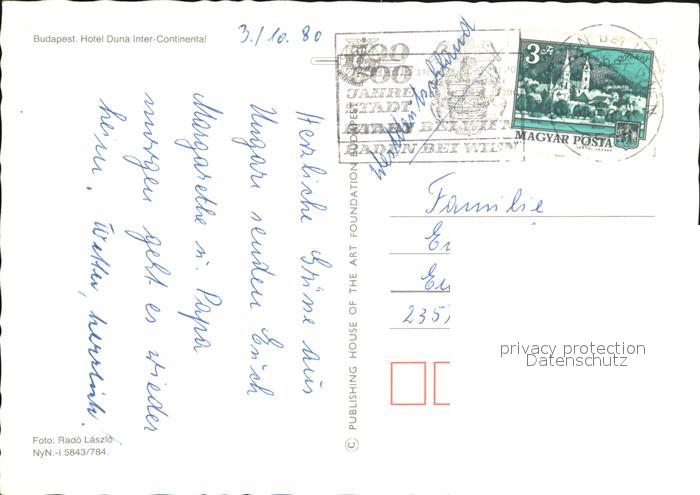 Budapest. Hotel Duna Inter-Continental
3./10. 80
Herzliche Grüsse aus
Ungarn senden Erich
Margarethe u. Papa
morgen geht es wieder
heim. Wetter, herrlich.
Foto: Radó László
NyN.-I.5843/784.
© PUBLISHING HOUSE OF THE ART FOUNDATION BUDAPEST
500
JAHRE
STADT
BADEN BEI WIEN
3 Ft
MAGYAR POSTA
Familie
235
privacy protection
Datenschutz